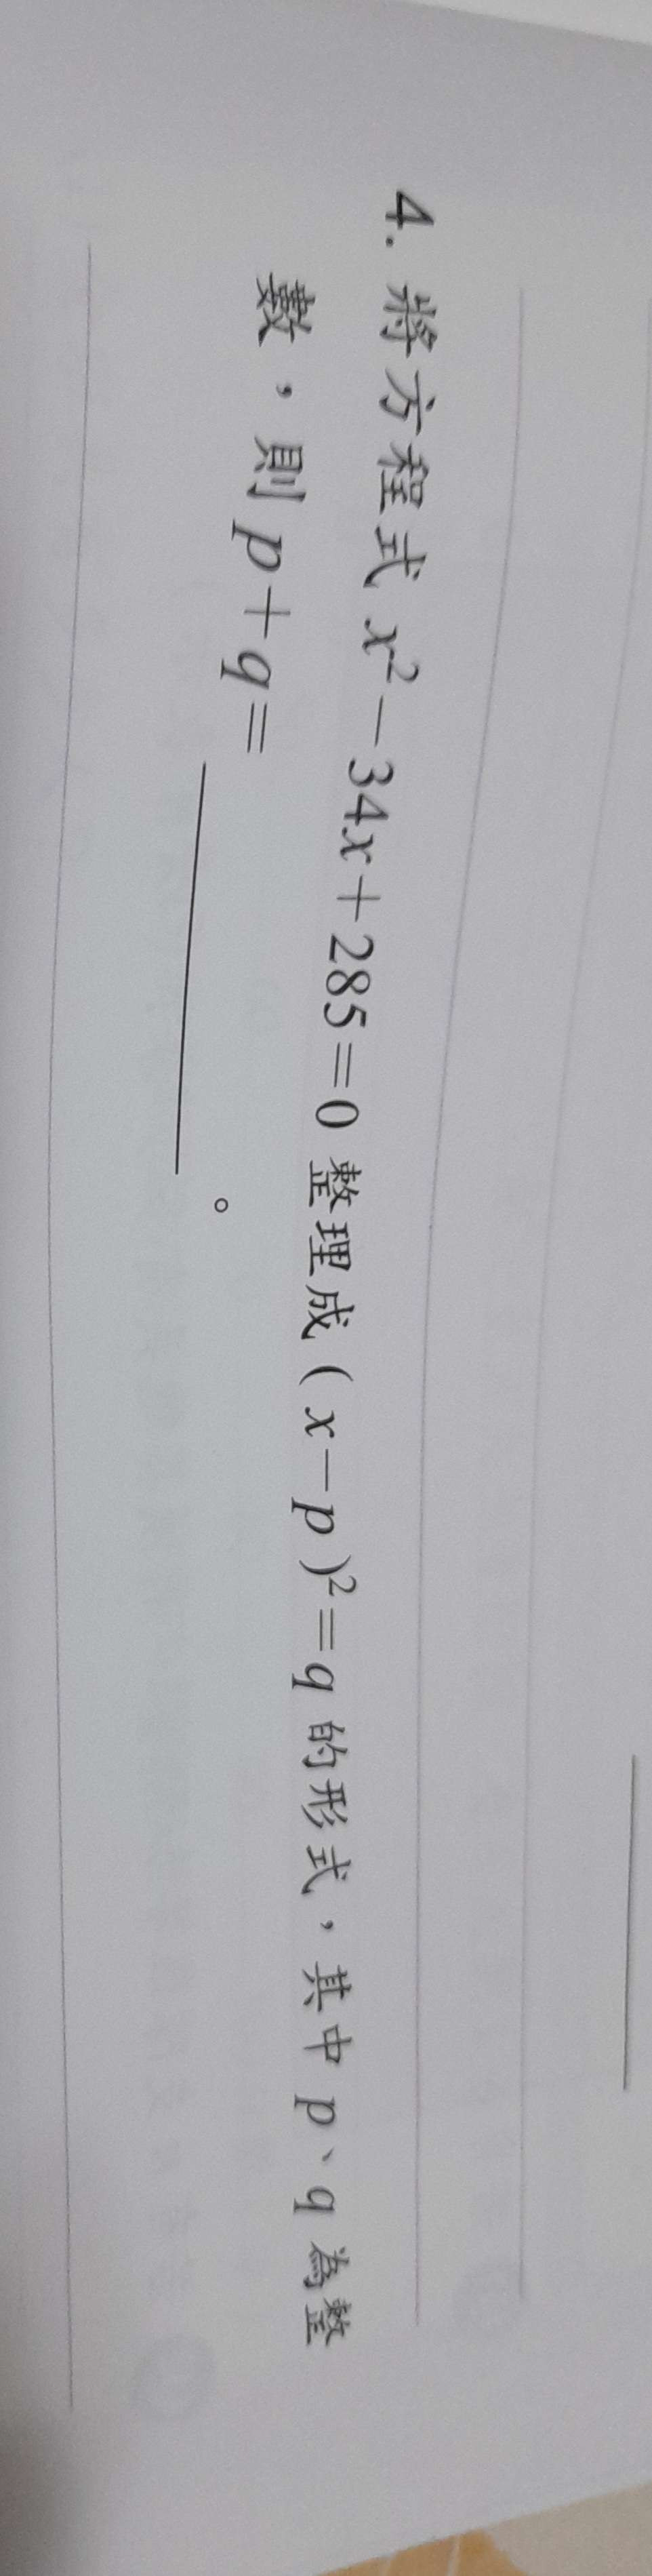 4. 將方程式 x²－34x＋285＝0 整理成 ( x－p )²＝q 的形式，其中 p、q 為整
數，則 p＋q＝＿＿＿＿＿＿。